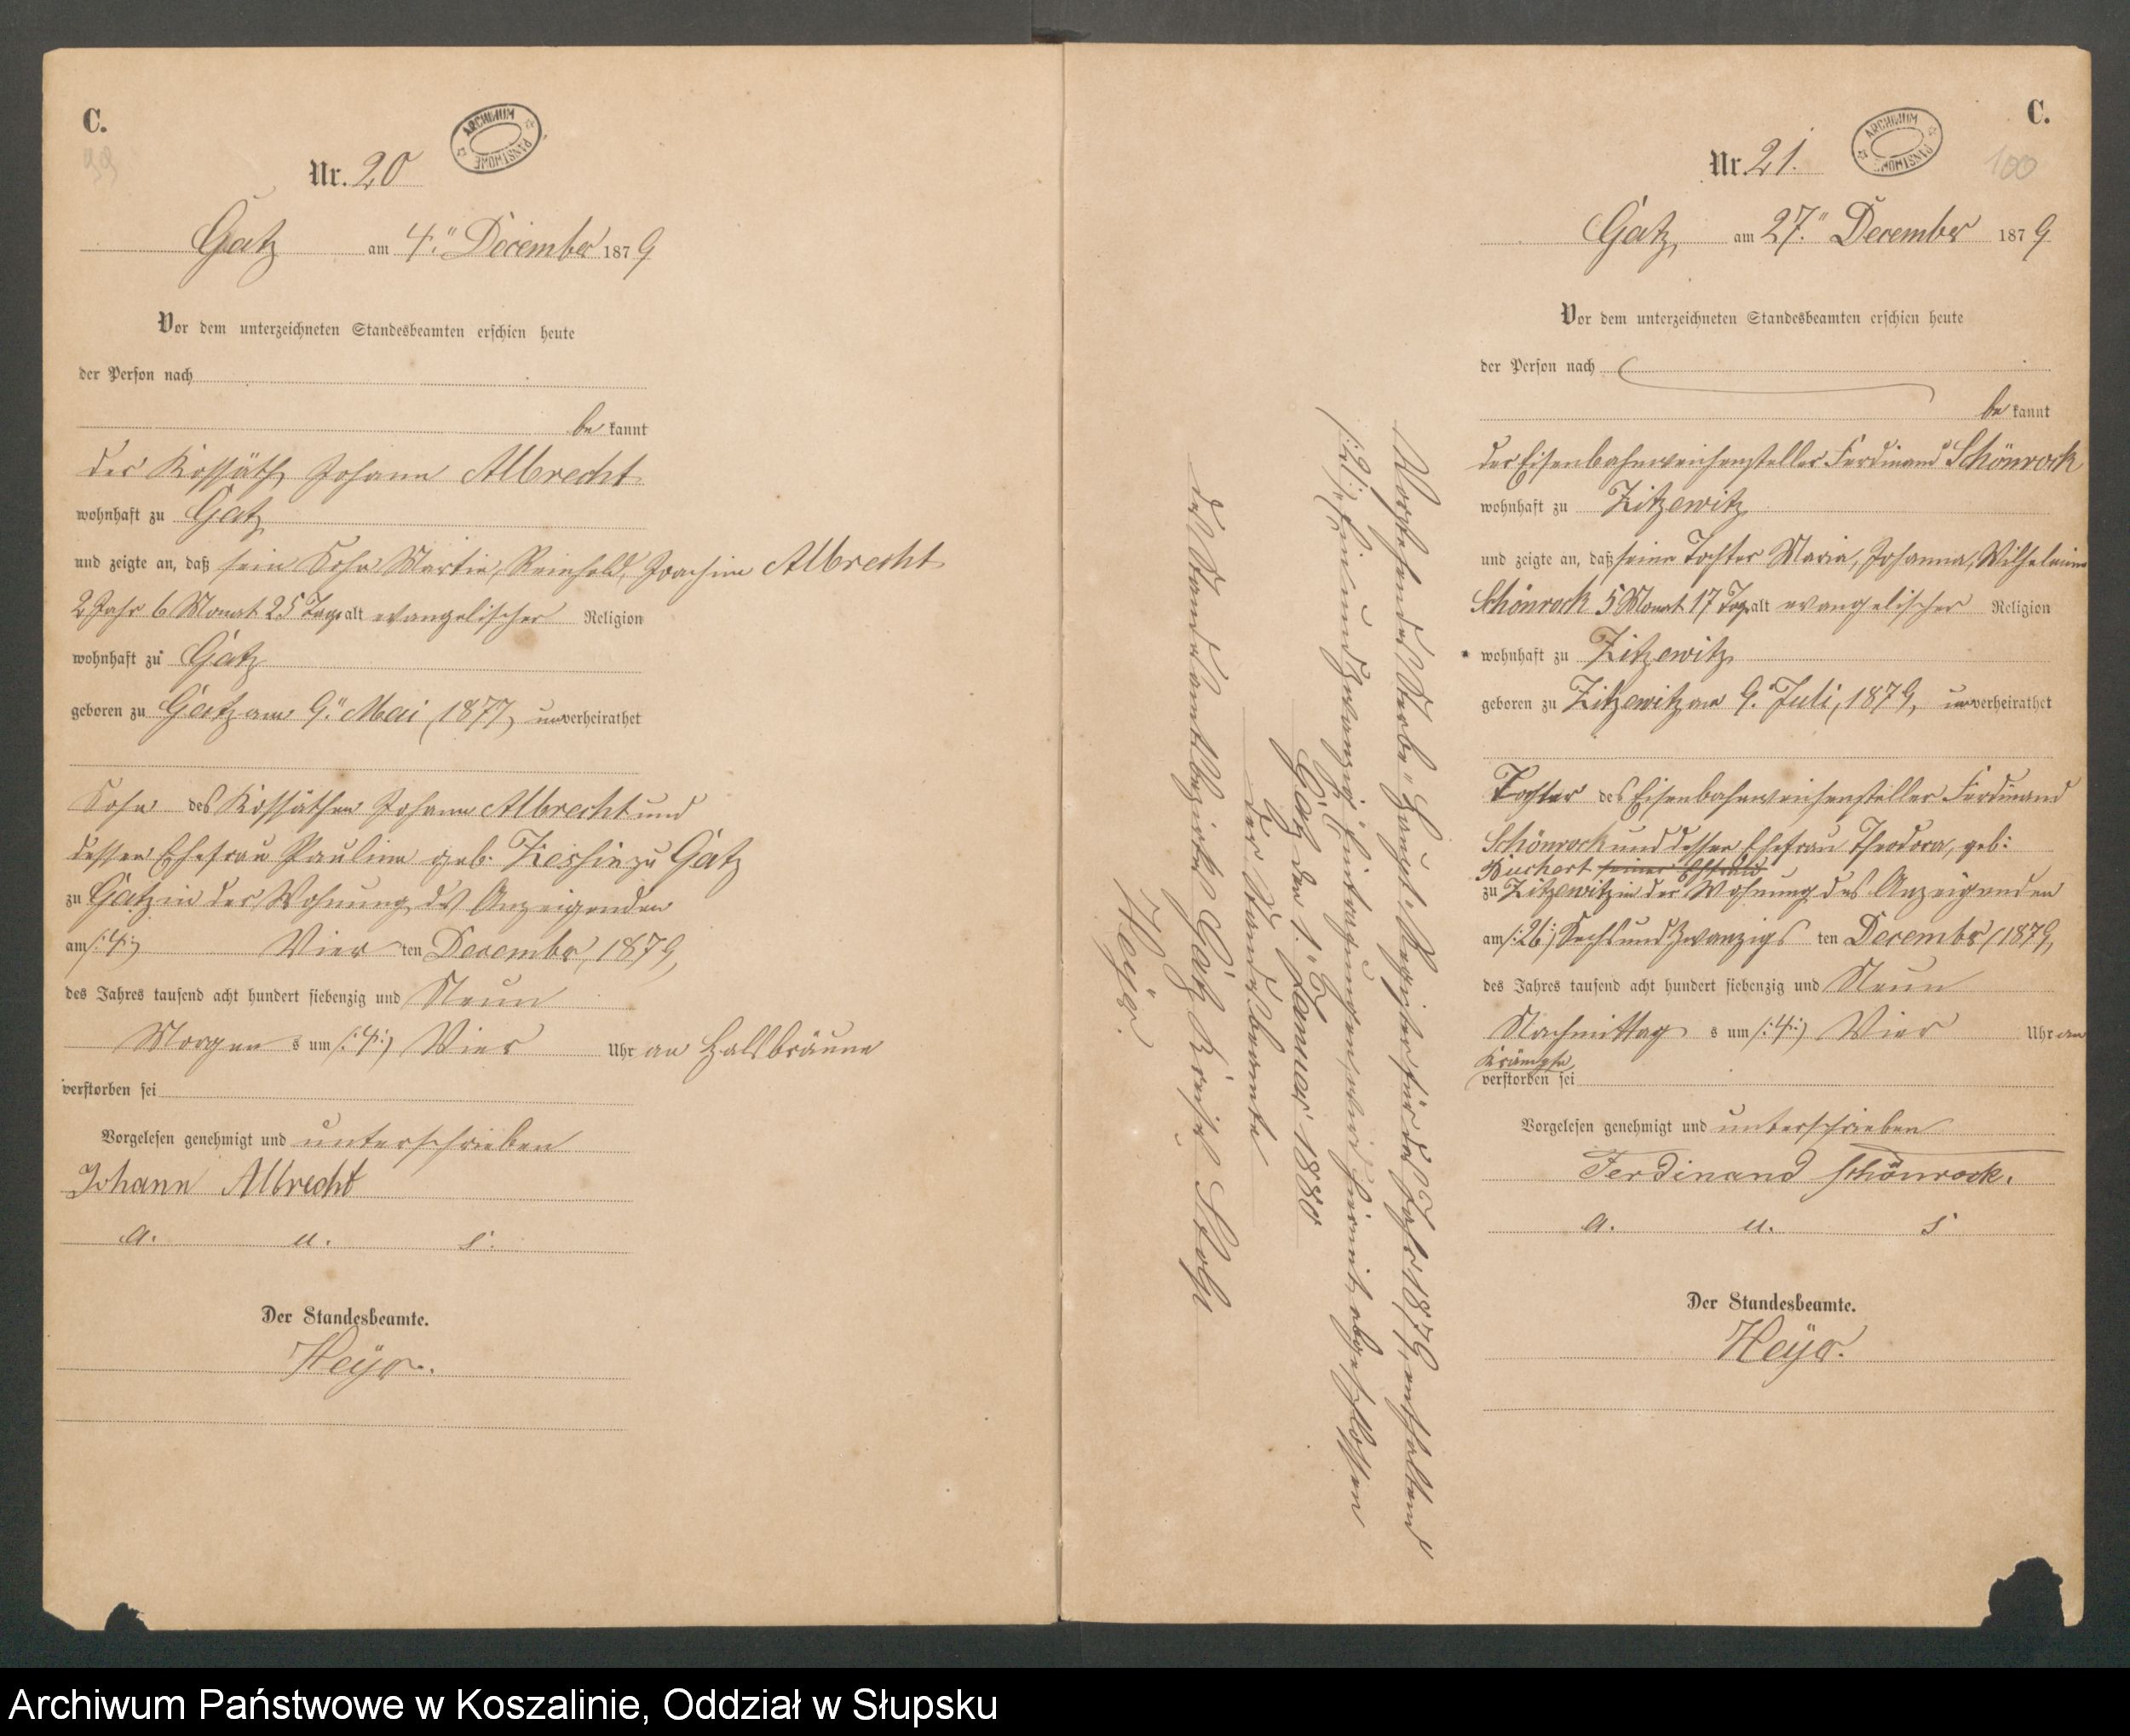 C.
99
Nr. 20
ARCHIWUM PAŃSTWOWE
Gatz am 4." December 1879
Vor dem unterzeichneten Standesbeamten erschien heute
der Person nach
be kannt
der Kossäth Johann Albrecht
wohnhaft zu Gatz
und zeigte an, daß sein Sohn Martin, Reinhold, Joachim Albrecht
2 Jahr 6 Monat 25 Tage alt evangelischer Religion
wohnhaft zu Gatz
geboren zu Gatz am 9." Mai, 1877, unverheirathet
Sohn des Kossäthen Johann Albrecht und
dessen Ehefrau Pauline geb. Zessin zu Gatz
zu Gatz in der Wohnung des Anzeigenden
am /:4:/ Vier ten December, 1879,
des Jahres tausend acht hundert siebenzig und Neun
Morgen s um /:4:/ Vier Uhr an Halsbräune
verstorben sei
Vorgelesen genehmigt und unterschrieben
Johann Albrecht
a. u. s.
Der Standesbeamte.
Heyr.
Vorstehendes Sterbe-Haupt-Register für das Jahr 1879, enthaltend
/:21:/ Ein und zwanzig Eintragungen, wird hiermit abgeschlossen
Gatz den 1." Januar 1880
Der Standesbeamte
des Standesamtsbezirks Gatz Kreises Stolp
Heyr.
C.
100
Nr. 21.
ARCHIWUM PAŃSTWOWE
Gatz, am 27." December 1879
Vor dem unterzeichneten Standesbeamten erschien heute
der Person nach
be kannt
der Eisenbahnweichensteller Ferdinand Schönrock
wohnhaft zu Zitzewitz
und zeigte an, daß seine Tochter Maria, Johanna, Wilhelmine
Schönrock 5 Monat 17 Tage alt evangelischer Religion
wohnhaft zu Zitzewitz
geboren zu Zitzewitz am 9. Juli, 1879, unverheirathet
Tochter des Eisenbahnweichensteller Ferdinand
Schönrock und dessen Ehefrau Theodora, geb:
seiner Ehefrau
zu Zitzewitz in der Wohnung des Anzeigenden
am /:26:/ Sechs und Zwanzigs ten December, 1879,
des Jahres tausend acht hundert siebenzig und Neun
Nachmittag s um /:4:/ Vier Uhr an
Krämpfe
verstorben sei
Vorgelesen genehmigt und unterschrieben
Ferdinand Schönrock.
a. u. s
Der Standesbeamte.
Heyr.
Archiwum Państwowe w Koszalinie, Oddział w Słupsku